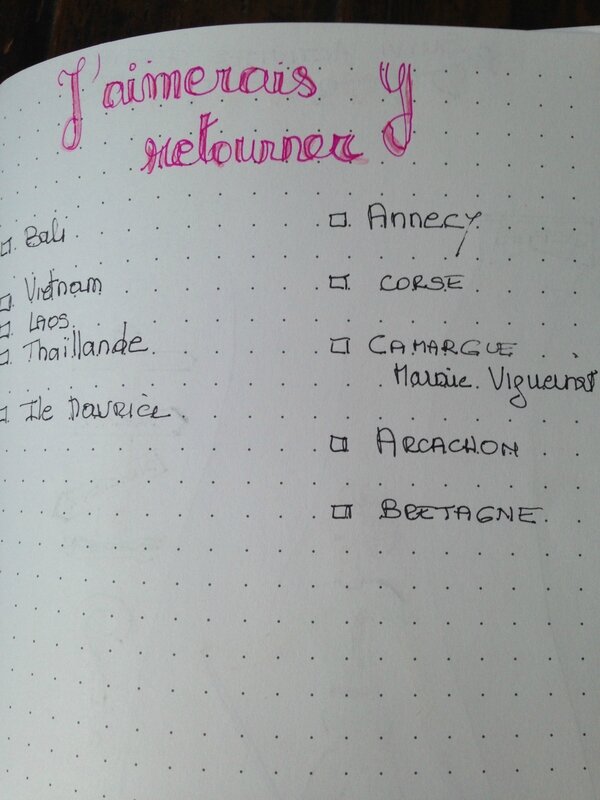 J'aimerais y
retourner
Bali
Vietnam
LAOS
Thaillande
Ile Maurice
ANNECY
CORSE
CAMARGUE
Viguerat
ARCACHON
BRETAGNE